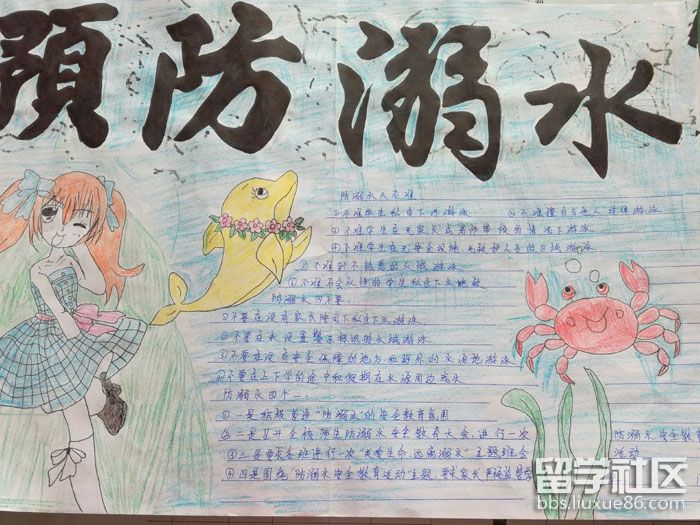 預防溺水
防溺水六不准
①不准学生私自下河游泳 ②不准擅自与他人结伴游泳
③不准学生在无家长或老师带领的情况下游泳
④不准学生在无安全设施、无救护人员的区域游泳
⑤不准到不熟悉的水域游泳
⑥不准不会水性的学生私自下水施救
防溺水四不要
①不要在没有家长陪同下私自下水游泳
②不要在未设置警示标识的水域游泳
③不要在没有安全保障的池塘和野外的水源地游泳
④不要在上下学的途中和假期在水源周边戏水
防溺水四个一:
①一是积极营造"防溺水"的安全教育氛围
②二是召开全校师生防溺水安全教育大会,进行一次
防溺水安全教
③三是要求各班进行一次"关爱生命,远离溺水"主题班会
活动
④四是围绕"防溺水安全教育活动"主题,要求家长
留学社区
bbs.liuxue86.com